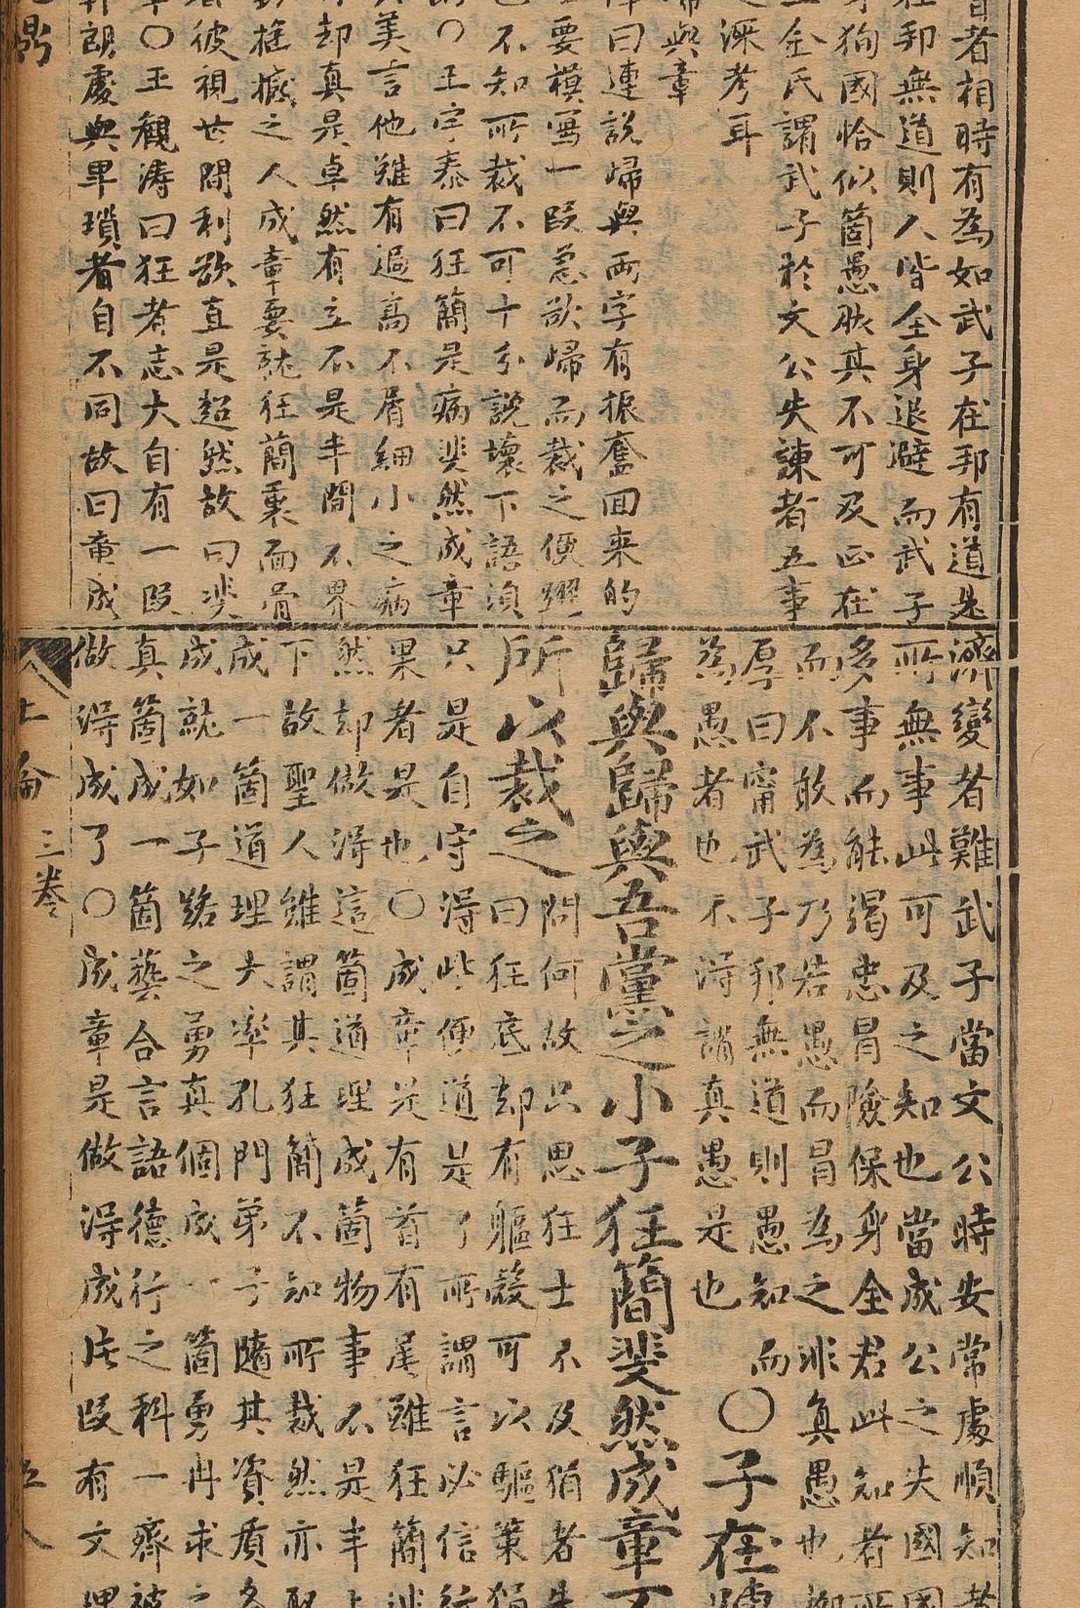 者相時有為如武子在邦有道是
在邦無道則人皆全身退避而武子
狥國恰似箇愚然其不可及正在
金氏謂武子於文公失諫者五事
深考耳
歸與章
曰連說歸與兩字有振奮回來的
要模寫一段急欲歸而裁之便躍
不知所裁不可十分說壞下語須
〇王宇泰曰狂簡是病斐然成章
美言他雖有過高不屑細小之病
却真是卓然有立不是半間不界
推撼之人成章要就狂簡裏面骨
彼視世間利欲直是超然故曰斐
〇王觀濤曰狂者志大自有一段
朗處與卑瑣者自不同故曰章成
濟變者難武子當文公時安常處順知者
所無事此可及之知也當成公之失國
多事而能竭忠冒險保身全君此知者所
而不敢為乃若愚而冒為之非真愚也
厚曰甯武子邦無道則愚知而〇子在陳
為愚者也不得謂真愚是也
歸與歸與吾黨之小子狂簡斐然成章不
所以裁之
問何故只思狂士不及狷者朱
曰狂底却有軀殼可以驅策狷
只是自守得些便道是了所謂言必信行
果者是也〇成章是有首有尾雖狂簡
然却做得這箇道理成箇物事不是半上
下故聖人雖謂其狂簡不知所裁然亦取
成一箇道理大率孔門弟子隨其資質各
成就如子路之勇真個成一箇勇冉求之
真箇成一箇藝合言語德行之科一齊被
做得成了〇成章是做得成片段有文理
上論 三卷 五